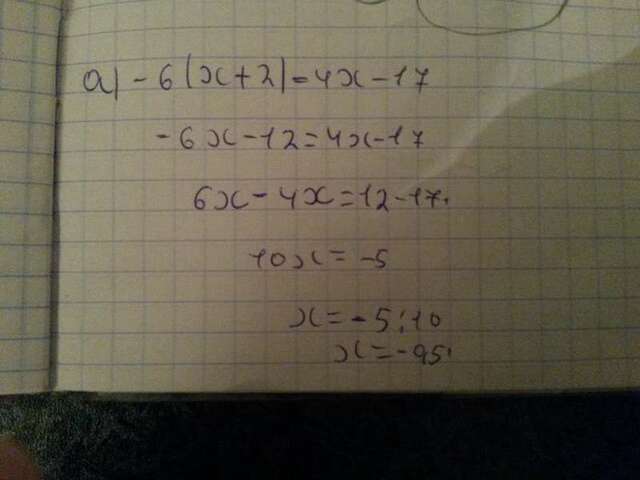 a) -6(x+2)=4x-17
-6x-12=4x-17
6x-4x=12-17.
10x=-5
x=-5:10
x=-0,5.